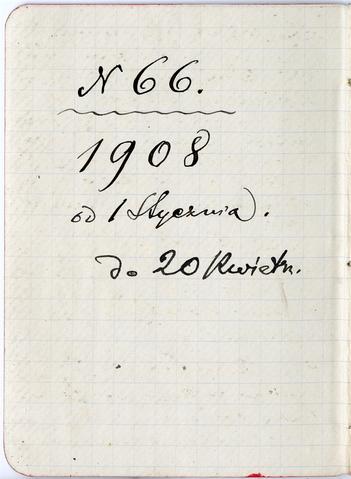 N 66.
1908
od 1 Stycznia.
do 20 Kwietn.